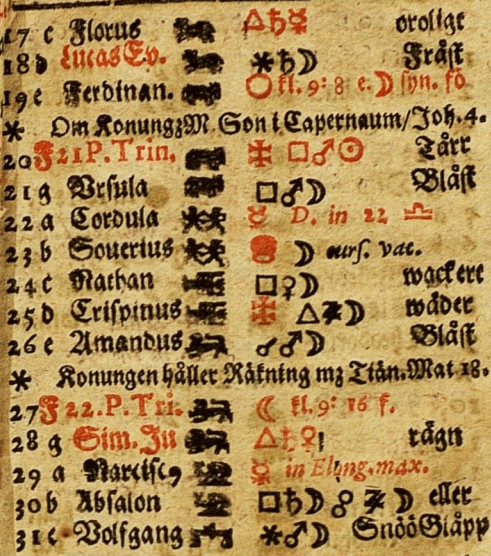 17 c Florus △♄☿ oroligt
18 d Lucas Ev. ✶♄☽ Fråst
19 e Ferdinan. ○ kl. 9: 8 e. ☽ syn. fö
✶ Om Konungz M. Son i Capernaum/Joh. 4.
20 F 21 P. Trin. ✠ □♂☉ Tårr
21 g Vrsula □♂☽ Blåst
22 a Cordula ☿ D. in 22 ♎
23 b Souerius ☽ curs. vac.
24 c Nathan □♀☽ wackert
25 d Crispinus ✠ △♃☽ wäder
26 e Amandus ☌♂☽ Blåst
✶ Konungen håller Räkning mz Tiän. Mat 18.
27 F 22. P. Tri. ☾ kl. 9: 16 f.
28 g Sim. Ju △♄♀ rägn
29 a Narcisc9 ☿ in Elong. max.
30 b Absalon □♄☽ ☍ ♃ ☽ eller
31 c Volfgang ✶♂☽ SnööGlåpp